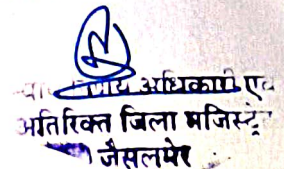 अधिकारी एवं
अतिरिक्त जिला मजिस्ट्रेट
जैसलमेर